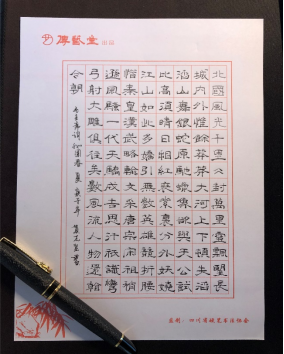 傳藝堂 出品
北國風光千里冰封萬里雪飄望長
城内外惟餘莽莽大河上下頓失滔
滔山舞銀蛇原馳蠟象欲與天公試
比高須晴日看紅裝素裹分外妖嬈
江山如此多嬌引無數英雄競折腰
惜秦皇漢武略輸文采唐宗宋祖稍
遜風騷一代天驕成吉思汗祇識彎
弓射大雕俱往矣數風流人物還看
今朝
毛主席詞沁園春 庚子年
监制：四川省硬笔书法协会